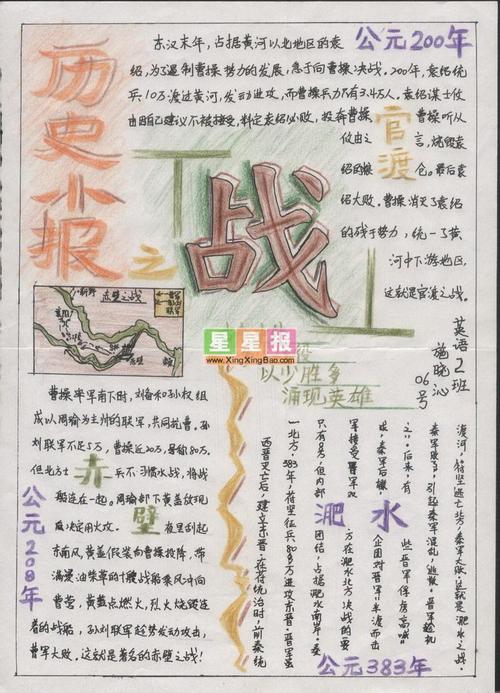 历史小报
之
战
公元200年
东汉末年，占据黄河以北地区的袁
绍，为了遏制曹操势力的发展，急于向曹操决战。200年，袁绍统
兵10万渡过黄河，发动进攻，而曹操兵力只有3.4万人。袁绍谋士攸
由因自己建议不被接受，判定袁绍必败，投奔曹操
官渡
曹操听从
攸由之言，烧毁袁
绍的粮仓。最后袁
绍大败。曹操消灭了袁绍
的残于势力，统一了黄
河中下游地区，
这就是官渡之战。
赤壁之战
星星报
www.XingXingBao.com
以少胜多
涌现英雄
英语2班
施晓沁
06号
曹操率军南下时，刘备和孙权组
成以周瑜为主帅的联军，共同抗曹。孙
刘联军不足5万，曹操近20万，号称80万。
但北方士兵不习惯水战，将战
船连在一起。周瑜部下黄盖发现
后决定用火攻。夜里刮起
东南风，黄盖假装向曹操投降，带
满灌油柴草的十艘战船乘风冲向
曹营，黄盖点燃火，烈火烧毁连
着的战船，孙刘联军趁势发动攻击，
曹军大败。这就是著名的赤壁之战！
赤壁
公元208年
西晋灭亡后，建立东晋。在苻统治时，前秦统
一北方，383年，苻坚征兵80多万进攻东晋。晋军虽
只有8万，但内部团结，占据淝水南岸，秦
军在淝水北方。决战的要
企图对晋军半渡而击
淝水
渡河，苻坚逃亡北方，秦军大败。这就是淝水之战。
公元383年